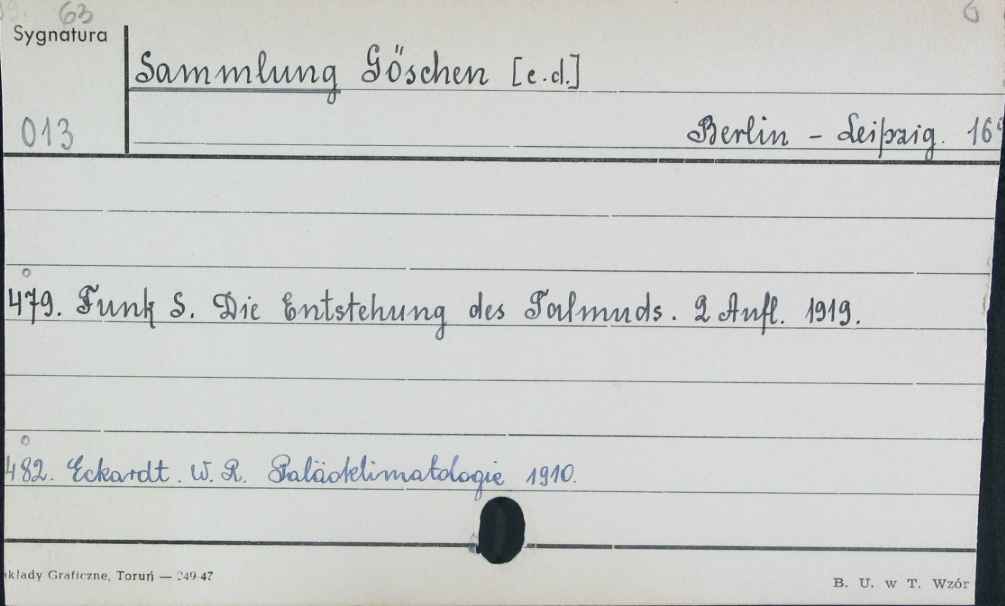 63
6
Sygnatura
Sammlung Göschen [e.d.]
013
Berlin - Leipzig. 16°
479. Funk S. Die Entstehung des Talmuds. 2 Aufl. 1919.
482. Eckardt. W. R. Paläoklimatologie 1910.
akłady Graficzne, Toruń — 249-47
B. U. w T. Wzór